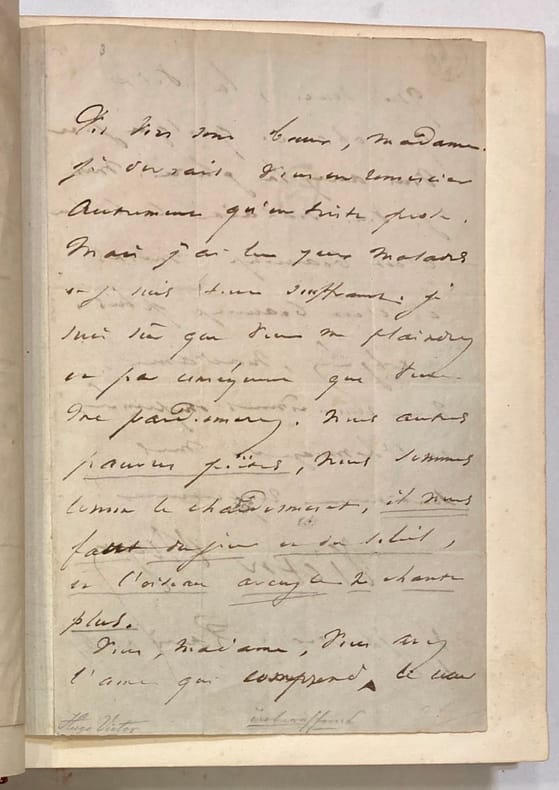 vos vers sont beaux, madame.
je devrais vous en remercier
autrement qu'en triste prose.
Mais j'ai les yeux malades
et je suis souffrant. je
suis sûr que vous me plaindrez
et par conséquent que vous
me pardonnerez. nous autres
pauvres poëtes, nous sommes
comme le chardonneret, il nous
faut du jour et du soleil,
et l'oiseau aveugle ne chante
plus.
Vous, Madame, vous avez
l'âme qui comprend, le cœur
Hugo Victor